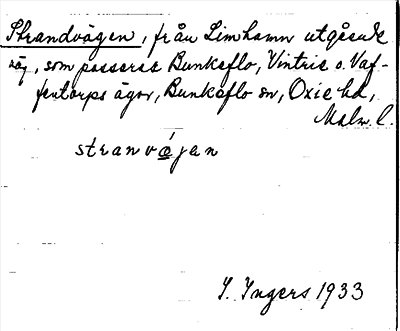 Strandvägen, från Limhamn utgående
väg, som passerar Bunkeflo, Vintrie o. Vaf-
fentorps ägor, Bunkeflo sn, Oxie hd,
Malm. l.
stranvǽjan
I. Ingers 1933